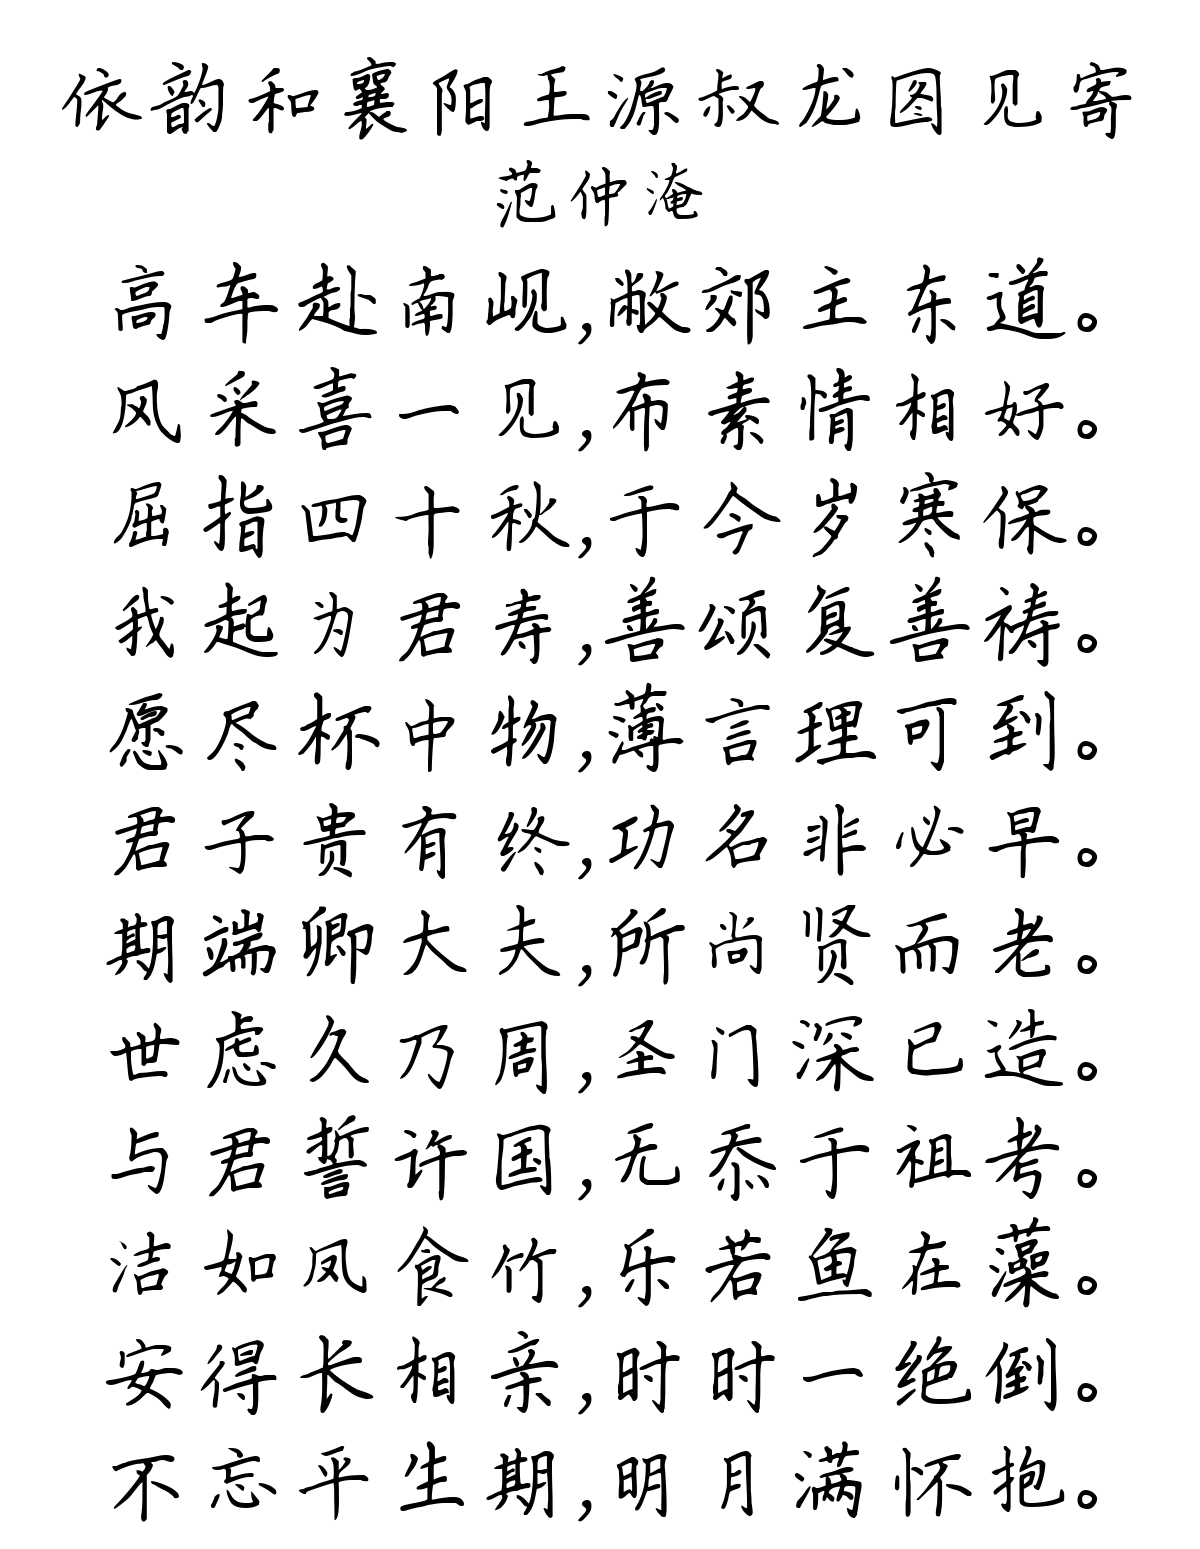 依韵和襄阳王源叔龙图见寄
范仲淹
高车赴南岘,敝郊主东道。
风采喜一见,布素情相好。
屈指四十秋,于今岁寒保。
我起为君寿,善颂复善祷。
愿尽杯中物,薄言理可到。
君子贵有终,功名非必早。
期端卿大夫,所尚贤而老。
世虑久乃周,圣门深已造。
与君誓许国,无忝于祖考。
洁如凤食竹,乐若鱼在藻。
安得长相亲,时时一绝倒。
不忘平生期,明月满怀抱。